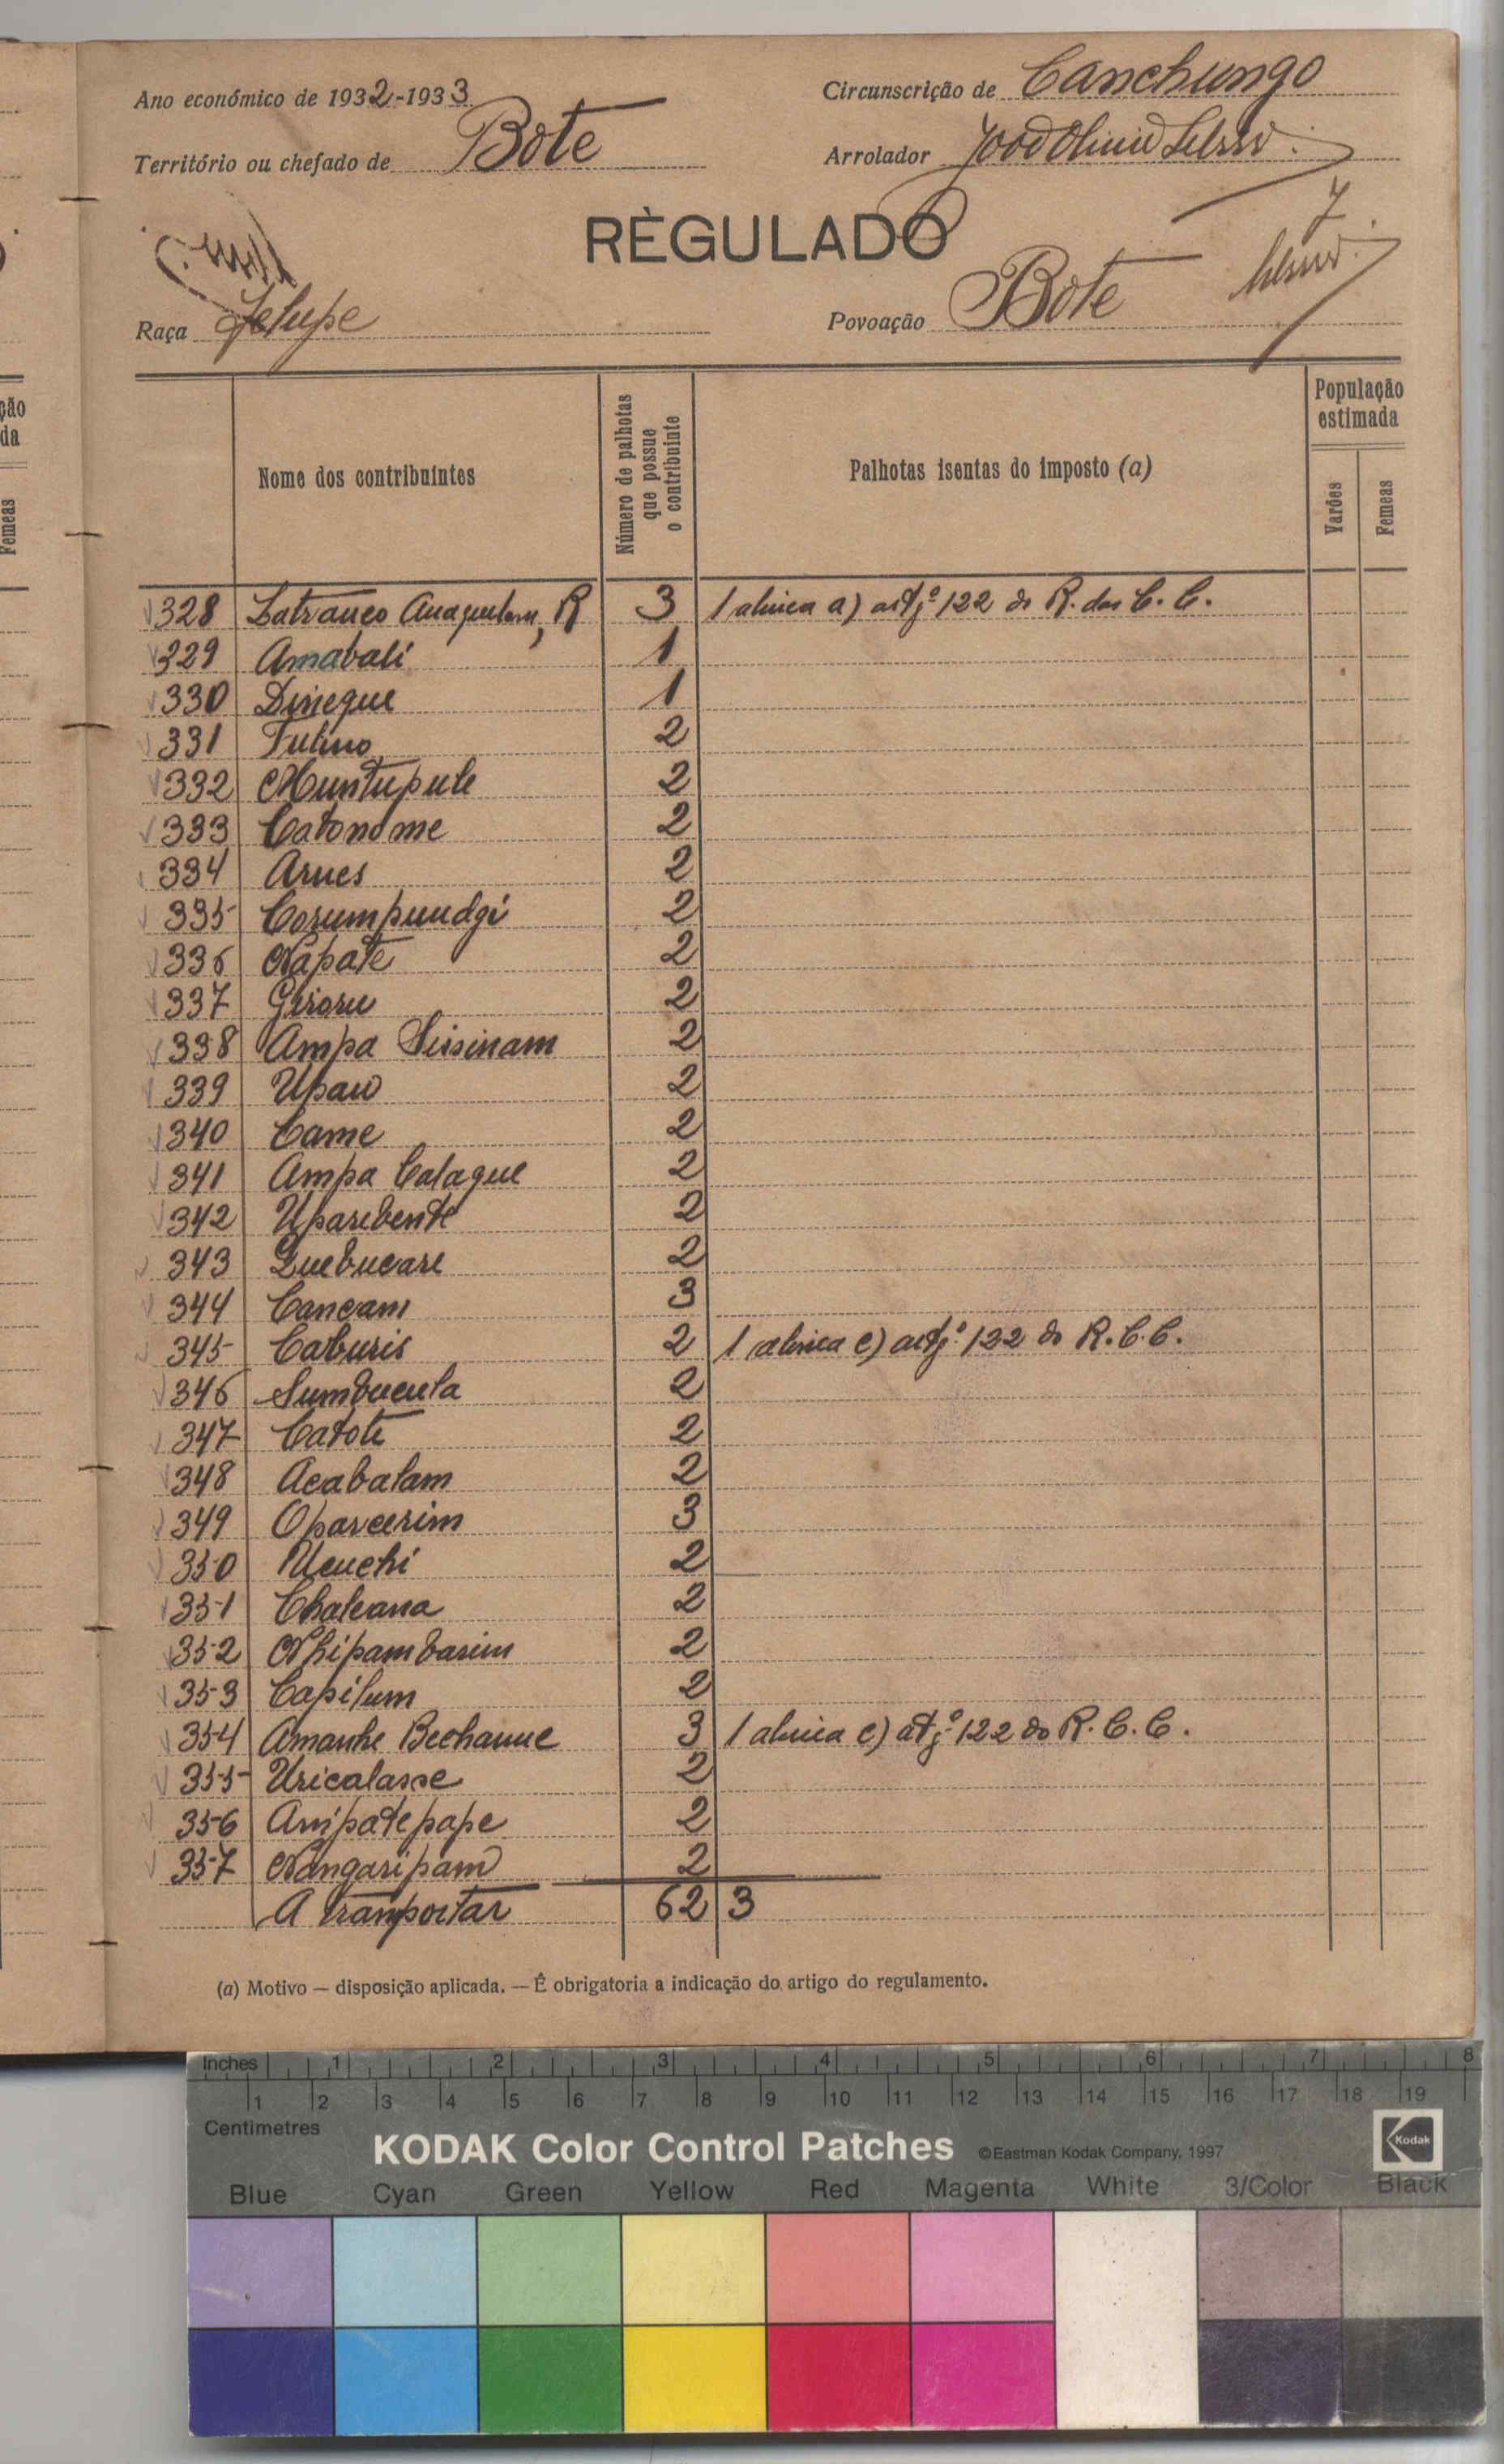 Ano económico de 1932-1933
Circunscrição de Canchungo
Território ou chefado de Bote
Arrolador
RÈGULADO
7
Raça Felupe
Povoação Bote
Nome dos contribuintes
Número de palhotas que possue o contribuinte
Palhotas isentas do imposto (a)
População estimada
Varões
Femeas
328 R 3 1 alinea a) artgº 122 do R. das C. C.
329 Amabali 1
330 Dinegue 1
331 Tulino 2
332 Muntupule 2
333 Catonome 2
334 Arues 2
335 Corumpundgi 2
336 Napate 2
337 Giroru 2
338 Ampa Sirsinam 2
339 Upaw 2
340 Came 2
341 Ampa Calaque 2
342 Uparebente 2
343 Quebucare 2
344 Cancam 3
345 Caburis 2 1 alinea c) artgº 122 do R. C. C.
346 Sumbucula 2
347 Catote 2
348 Acabalam 2
349 Oparcerim 3
350 Ucuchi 2
351 Chaleana 2
352 Nhipambarim 2
353 Capilum 2
354 Amanhe Bechaune 3 1 alinea c) atgº 122 do R. C. C.
355 Uricalasse 2
356 Ampatepape 2
357 Nangaripam 2
A transportar 62 3
(a) Motivo — disposição aplicada. — É obrigatoria a indicação do artigo do regulamento.
ção
da
Femeas
Inches 1 2 3 4 5 6 7 8
1 2 3 4 5 6 7 8 9 10 11 12 13 14 15 16 17 18 19
Centimetres
KODAK Color Control Patches ©Eastman Kodak Company, 1997 Kodak
Blue Cyan Green Yellow Red Magenta White 3/Color Black